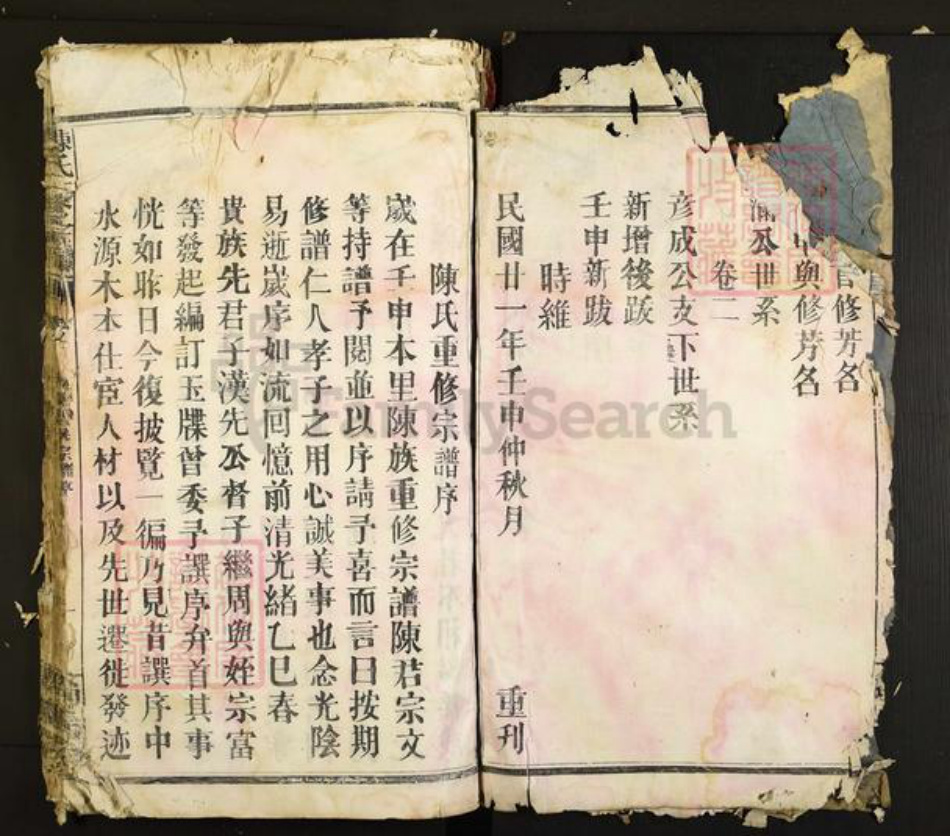 修芳名
與修芳名
滿公世系
卷二
彦成公支下世系
新增後跋
壬申新跋
時維
民國廿一年壬申仲秋月 重刊
陳氏重修宗譜序
歲在壬申本里陳族重修宗譜陳君宗文
等持譜予閱並以序請予喜而言曰按期
修譜仁人孝子之用心誠美事也念光陰
易逝歲序如流回憶前清光緒乙巳春
貴族先君子漢先公督子繼周與姪宗富
等發起編訂玉牒曾委予譔序弁首其事
恍如昨日今復披覽一徧乃見昔譔序中
水源木本仕宦人材以及先世遷徙發迹
陳氏
FamilySearch